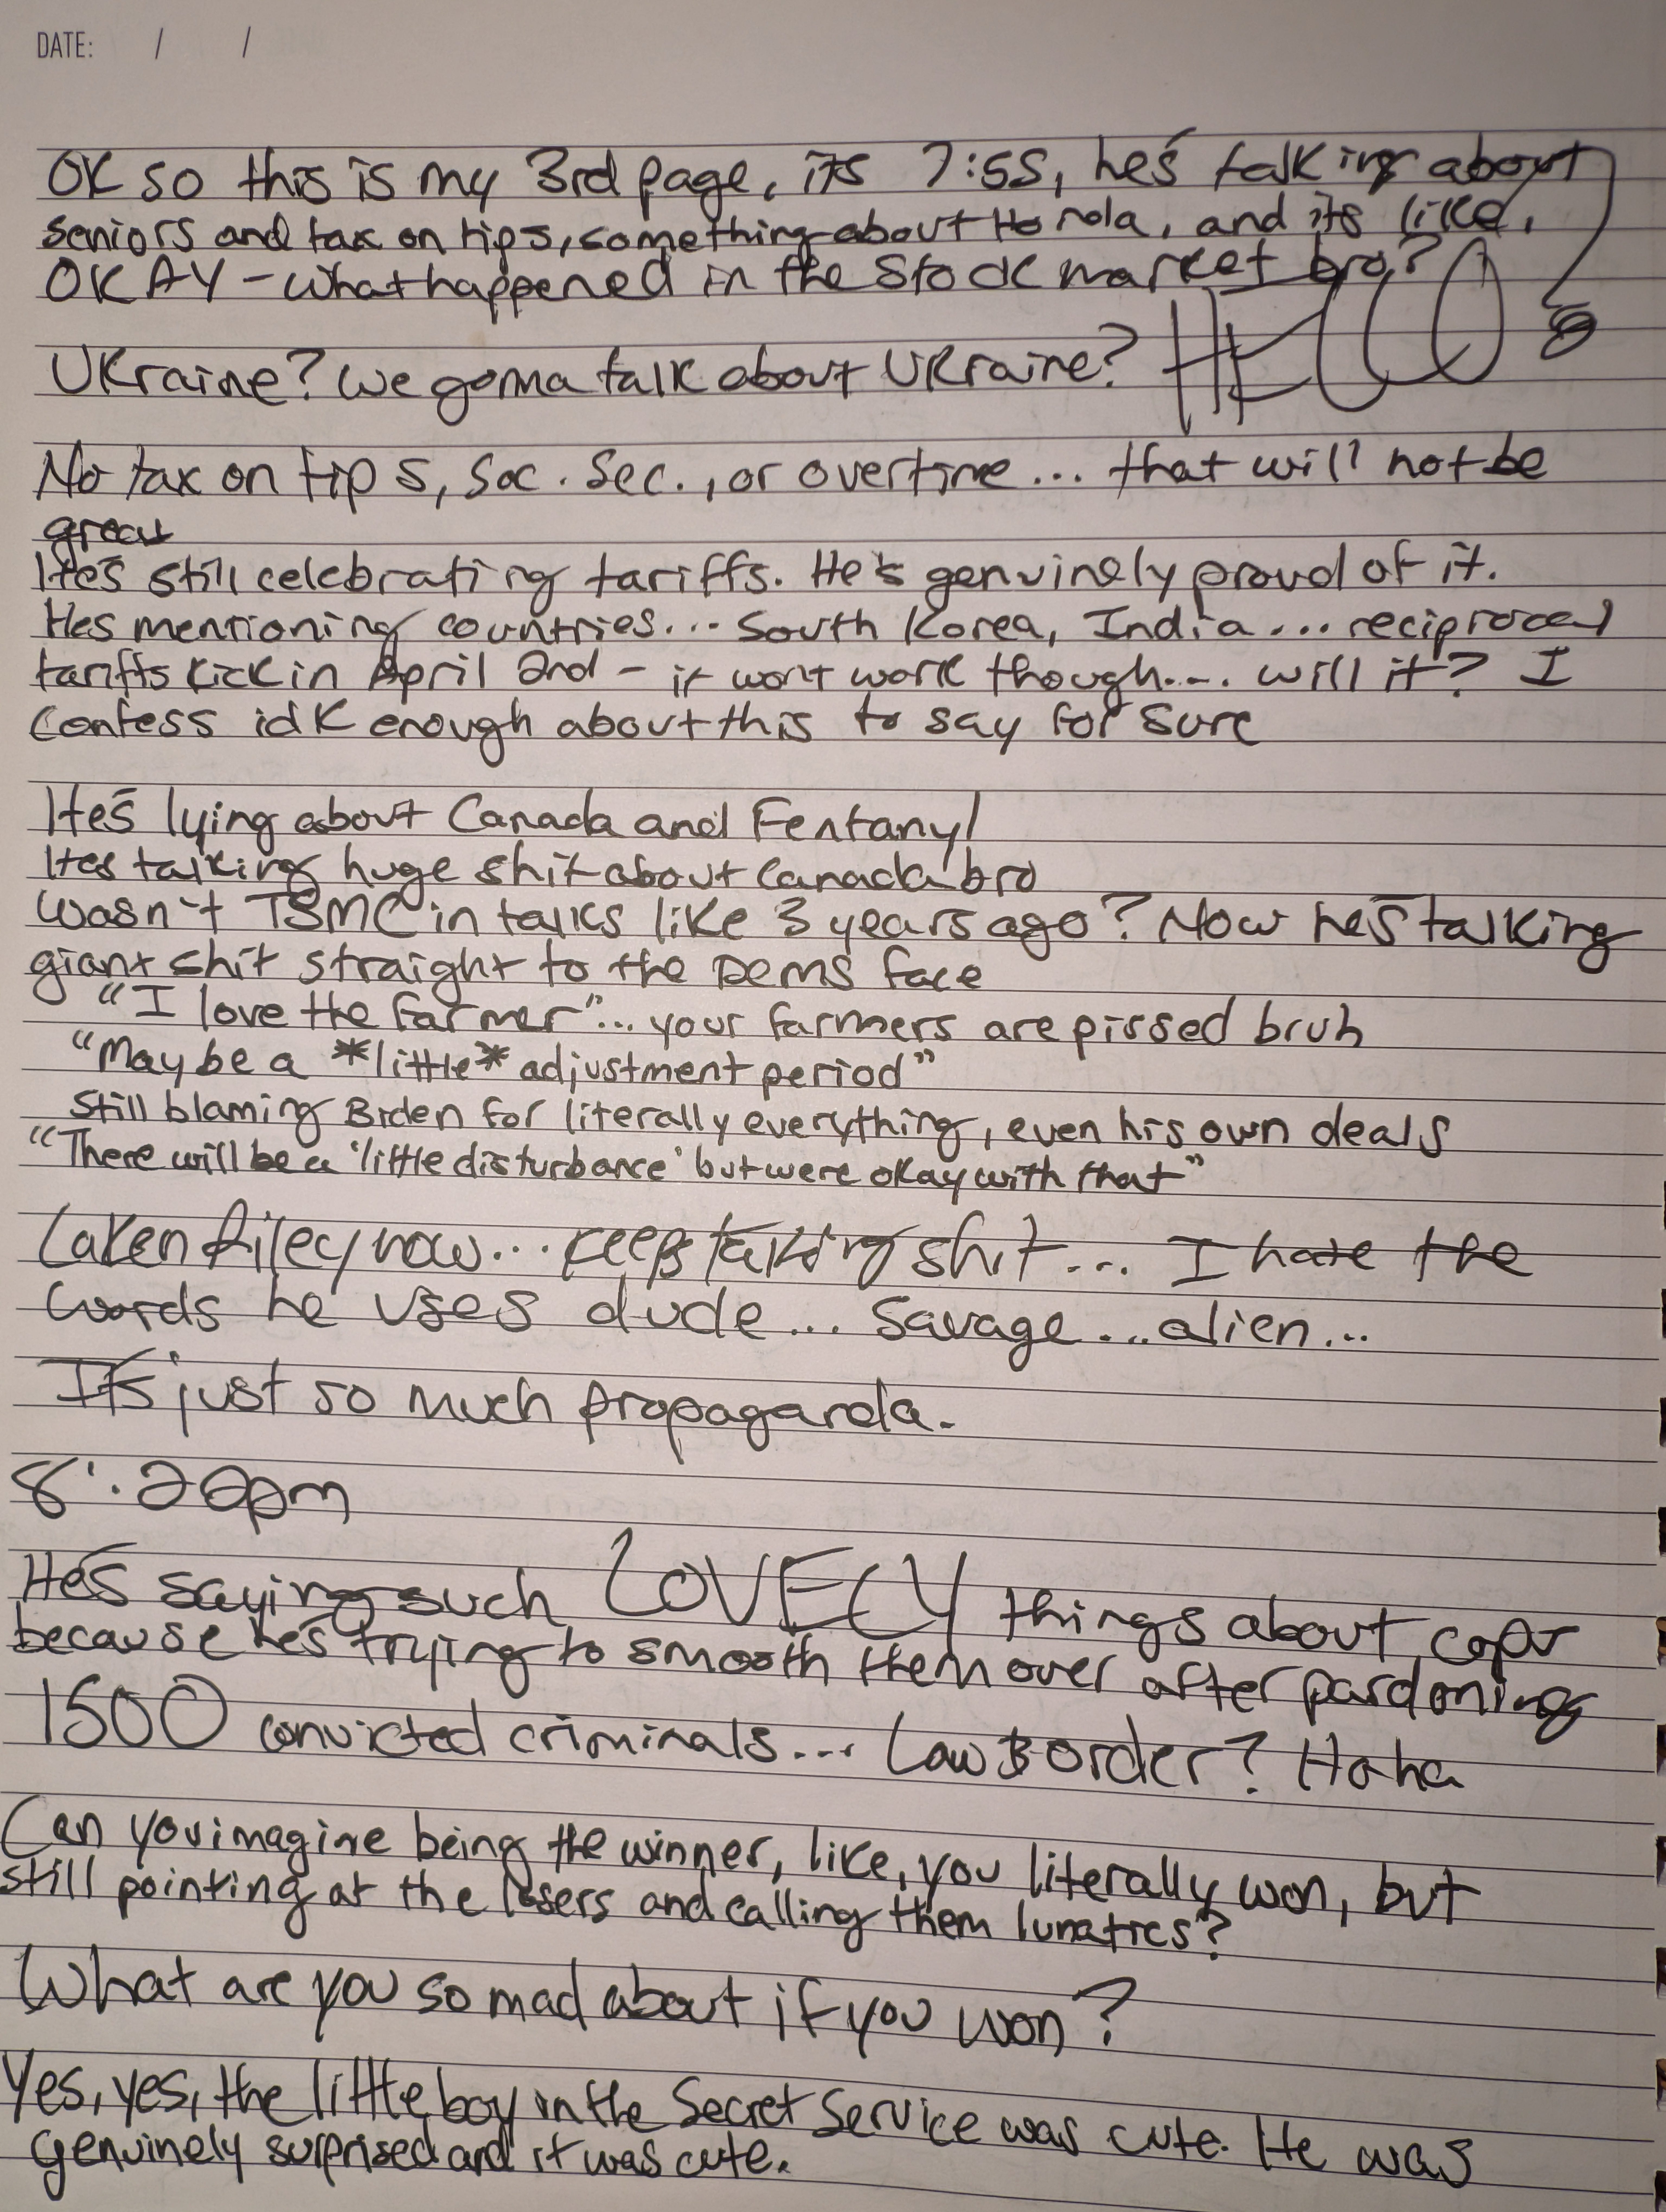 DATE: / /
OK so this is my 3rd page, its 7:55, he's talking about
seniors and tax on tips, something about Honda, and its like,
OKAY - what happened in the stock market bro?
Ukraine? We gonna talk about Ukraine? HELLO
No tax on tips, Soc. Sec., or overtime... that will not be
great
He's still celebrating tariffs. He's genuinely proud of it.
Hes mentioning countries... South Korea, India... reciprocal
tariffs kick in April 2nd - it wont work though.... will it? I
confess idk enough about this to say for sure
He's lying about Canada and Fentanyl
Hes talking huge shit about Canada bro
Wasn't TSMC in talks like 3 years ago? Now he's talking
giant shit straight to the Dems face
"I love the farmer"... your farmers are pissed bruh
"May be a *little* adjustment period"
Still blaming Biden for literally everything, even his own deals
"There will be a 'little disturbance' but were okay with that"
Laken Riley now... keeps talking shit... I hate the
words he uses dude... Savage... alien...
It's just so much propaganda.
8:20pm
He's saying such LOVELY things about cops
because he's trying to smooth them over after pardoning
1500 convicted criminals.... Law & Order? Haha
Can you imagine being the winner, like, you literally won, but
still pointing at the losers and calling them lunatics?
What are you so mad about if you won?
Yes, yes, the little boy in the Secret Service was cute. He was
genuinely surprised and it was cute.